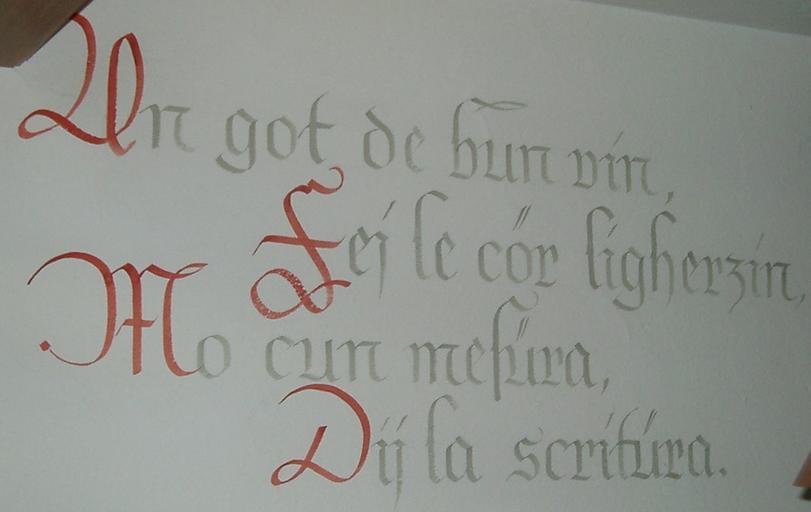 Un got de bun vin,
Fej le cőr ligherzin,
Mo cun mesűra,
Dij la scritűra.